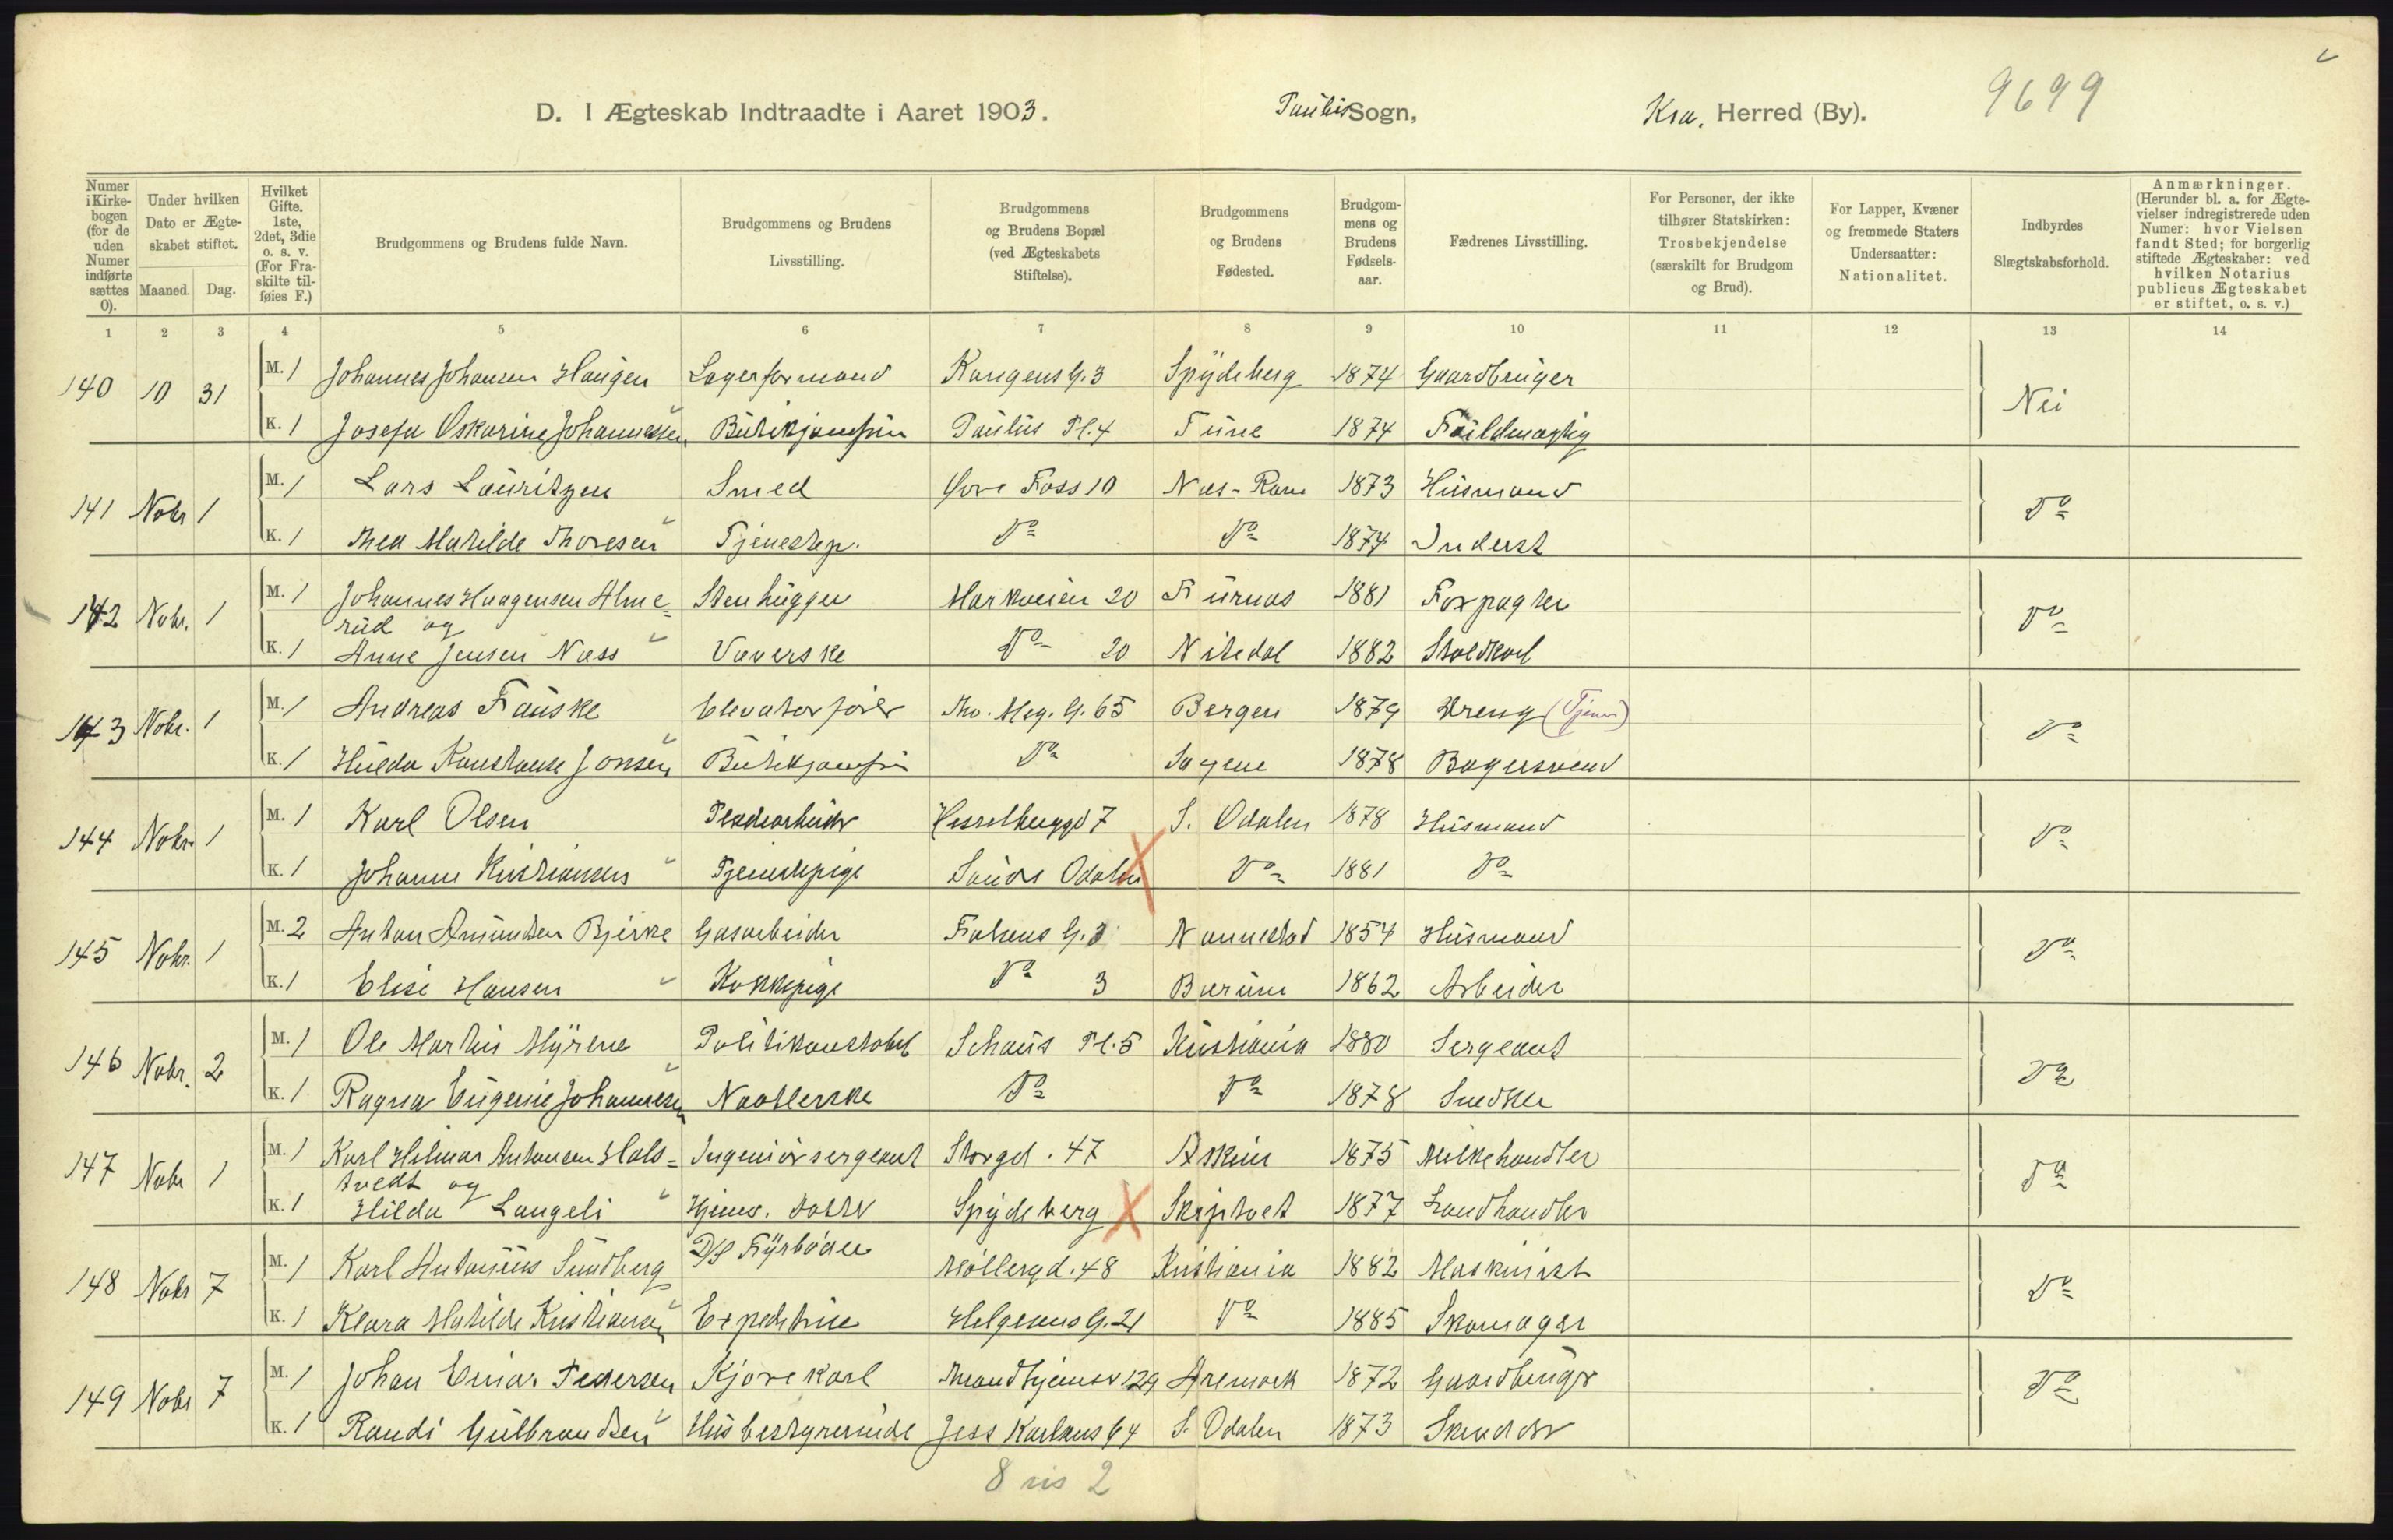 9699
D. I Ægteskab Indtraadte i Aaret 1903. Paulus Sogn, Kra. Herred (By).
Numer i Kirke-bogen (for de uden Numer indførte sættes 0).
Under hvilken Dato er Ægte-skabet stiftet. Maaned. Dag.
Hvilket Gifte. 1ste, 2det, 3die o. s. v. (For Fra-skilte til-føies F.)
Brudgommens og Brudens fulde Navn.
Brudgommens og Brudens Livsstilling.
Brudgommens og Brudens Bopæl (ved Ægteskabets Stiftelse).
Brudgommens og Brudens Fødested.
Brudgom-mens og Brudens Fødsels-aar.
Fædrenes Livsstilling.
For Personer, der ikke tilhører Statskirken: Trosbekjendelse (særskilt for Brudgom og Brud).
For Lapper, Kvæner og fremmede Staters Undersaatter: Nationalitet.
Indbyrdes Slægtskabsforhold.
Anmærkninger. (Herunder bl. a. for Ægte-vielser indregistrerede uden Numer: hvor Vielsen fandt Sted; for borgerlig stiftede Ægteskaber: ved hvilken Notarius publicus Ægteskabet er stiftet, o. s. v.)
1 2 3 4 5 6 7 8 9 10 11 12 13 14
140 10 31 M. 1 Johannes Johansen Haugen Lagerformand Kongens G. 3 Spydeberg 1874 Gaardbruger Nei
K. 1 Josefa Oskarine Johannessen Butikjomfru Paulus Pl. 4 Tune 1874 Fuldmægtig
141 Nobr 1 M. 1 Lars Lauritzen Smed Øvre Foss 10 Næs - Rom 1873 Husmand Do
K. 1 Thea Matilde Thoresen Tjenestep. Do Do 1874 Inderst
142 Nobr. 1 M. 1 Johannes Haagensen Alme= Stenhugger Markveien 20 Furnæs 1881 Forpagter Do
rud og
K. 1 Anne Jensen Næss Væverske Do 20 Nitedal 1882 Staldkarl
143 Nobr. 1 M. 1 Andreas Fauske Elevatorfører Thv. Mey. G. 65 Bergen 1879 Dreng (Tjener) Do
K. 1 Hulda Konstanse Jonsen Butikjomfru Do Sagene 1878 Bagersvend
144 Nobr. 1 M. 1 Karl Olsen Hesselberggd 7 S. Odalen 1878 Husmand Do
K. 1 Johanne Kristiansen Tjenestepige Søndre Odalen Do 1881 Do
145 Nobr. 1 M. 2 Anton Amundsen Bjerke Gasarbeider Falsens G. 3 Nannestad 1854 Husmand Do
K. 1 Elise Hansen Kokkepige Do 3 Bærum 1862 Arbeider
146 Nobr. 2 M. 1 Ole Martin Myrene Politikonstabel Schous Pl. 5 Kristiania 1880 Sergeant Do
K. 1 Ragna Eugenie Johannesen Naatlerske Do Do 1878 Snedker
147 Nobr 1 M. 1 Karl Hilmar Antonsen Hals= Ingeniørsergeant Storgd. 47 Askim 1875 Melkehandler Do
tvedt og
K. 1 Hilda Langeli Hjemv. datter Spydeberg Skiptvet 1877 Landhandler
148 Nobr 7 M. 1 Karl Antonius Sundberg D/S Fyrbøder Møllergd. 48 Kristiania 1882 Maskinist Do
K. 1 Klara Matilde Kristiansen Expeditrice Helgesens G. 21 Do 1885 Skomager
149 Nobr 7 M. 1 Johan Einar Pedersen Kjørekarl Trondhjemsv 129 Aremark 1872 Gaardbruger Do
K. 1 Randi Gulbrandsen Husbestyrerinde Jess Karlsens 64 S. Odalen 1873 Skrædder
8 2